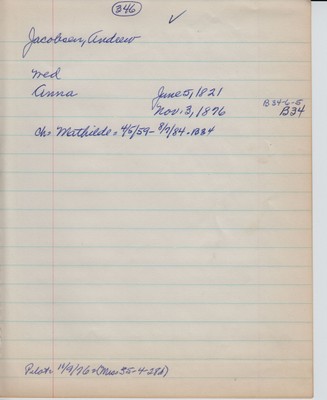 346 ✓
Jacobsen, Andrew
med
Anna June 5, 1821
Nov. 3, 1876 B34-6-5 B34
Ch= Mathilde = 4/5/59 - 8/7/84 - B34
Pilot= 11/9/76 = (Miss 35-4-28d)